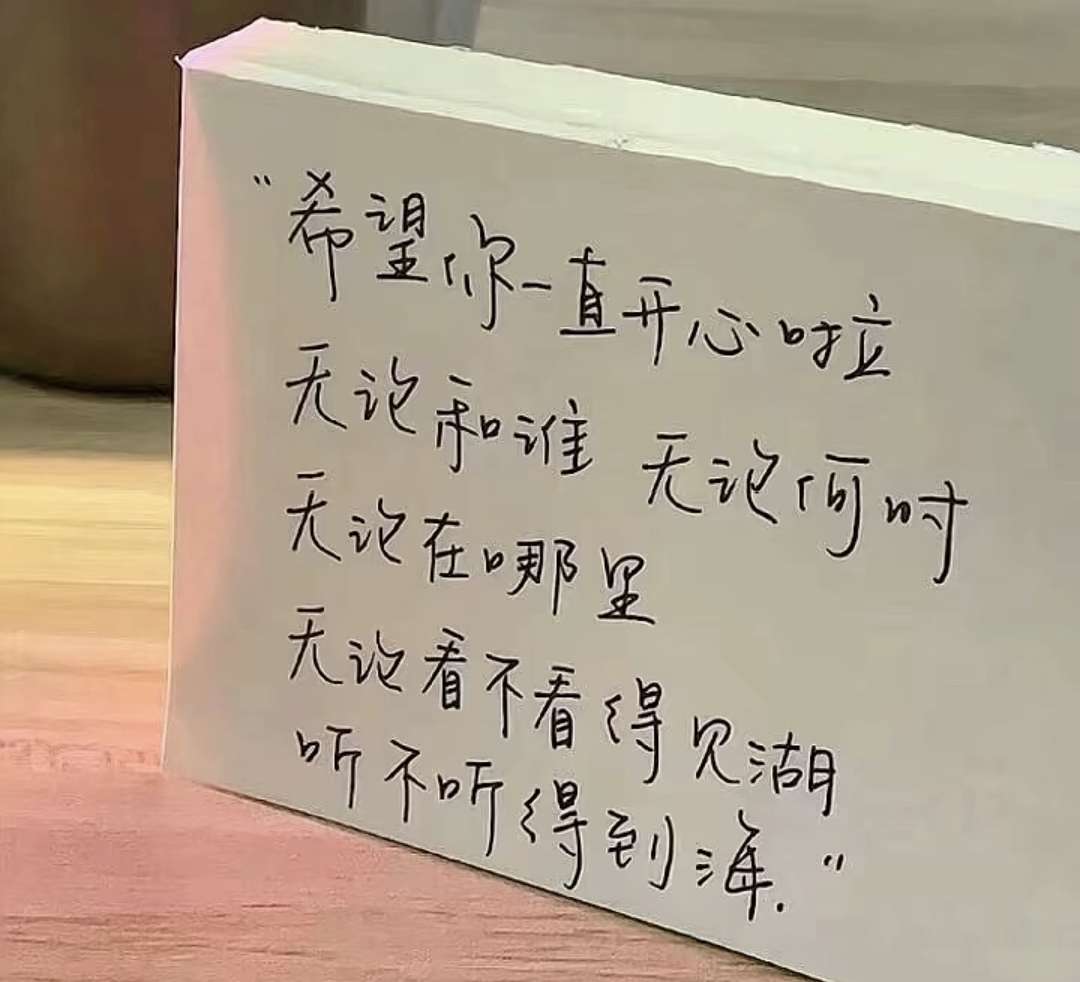 “希望你一直开心啦
无论和谁 无论何时
无论在哪里
无论看不看得见湖
听不听得到海.”